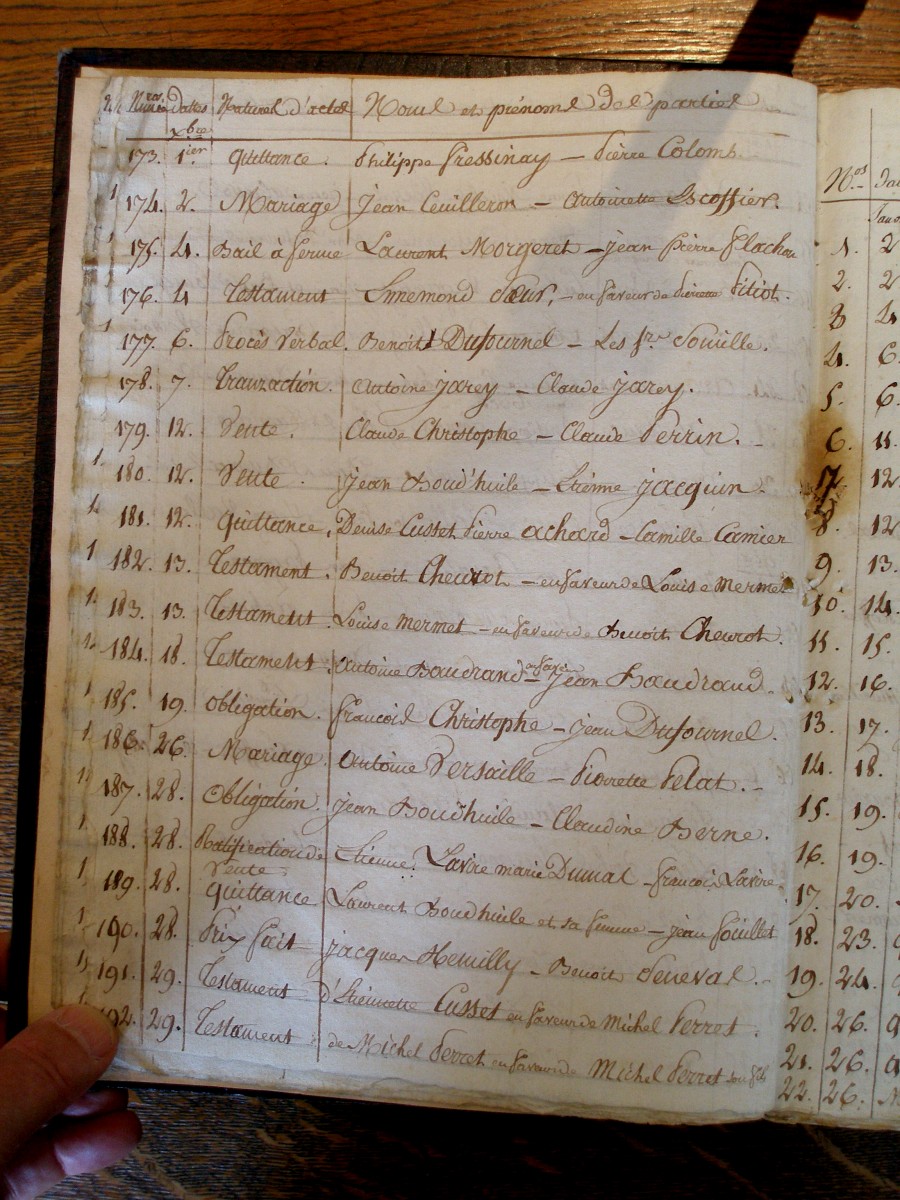 Nros Dattes Natures d'actes Noms et prénoms des parties
xbre
173. 1ier Quittance. Philippe Fressinay – Pierre Colomb.
174. 2. Mariage Jean Ceuilleron – Antoinette Escoffier.
175. 4. Bail à ferme Laurent Morgeret – jean pierre flachon
176. 4 Testament Simemond Sœur, – en faveur de Pierrette Pitiot.
177. 6. Procès Verbal. Benoit Dufournel – Les frs Souille.
178. 7. Tranzaction. Antoine jarey – Claude jarey.
179. 12. Vente. Claude Christophe – Claude Perrin.
180. 12. Vente. jean Boud'huile – Etienne jacquin.
181. 12. Quittance, Denise Cusset Pierre achard – Camille Camier
182. 13. Testament. Benoit Chevrot – en faveur de Louise Mermet
183. 13. Testament. Louise Mermet – en faveur de Benoit Chevrot.
184. 18. Testament. Antoine Baudrand en favr jean Baudrand.
185. 19. Obligation. François Christophe – jean Dufournel.
186. 26. Mariage. Antoine Versaille – Pierrette Pelat.
187. 28. Obligation. jean Boudhuile – Claudine Berne.
188. 28. Ratification de Vente Etienne Lavire marie Dumas – François Lavire
189. 28. Quittance Laurent Boudhuile et sa femme – jean Pouillet
190. 28. Prix fait jacques Remilly – Benoit Peneval.
191. 29. Testament d'Etiennette Cusset en faveur de Michel Perret.
192. 29. Testament de Michel Perret en faveur de Michel Perret son fils
Nos
1. 2
2. 2
3 4
4. 6
5. 6.
6. 11.
7. 12
8. 12
9. 13.
10. 14.
11. 15.
12. 16.
13. 17.
14. 18.
15. 19.
16. 19.
17. 20.
18. 23.
19. 24.
20. 26.
21. 26.
22. 26.